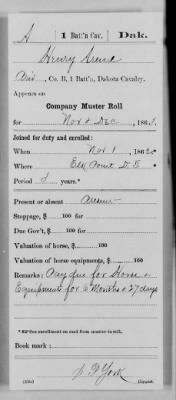 A | 1 Batt'n Cav. | Dak.
Henry Arend
Pvt., Co. B, 1 Batt'n, Dakota Cavalry.
Appears on
Company Muster Roll
for Nov & Dec, 1863.
Joined for duty and enrolled:
When Nov 1, 186
Where Elk Point D.T.
Period 3 years.*
Present or absent
Stoppage, $ 100 for
Due Gov't, $ 100 for
Valuation of horse, $ 100
Valuation of horse equipments, $ 100
Remarks: Pay due for Horse &
Equipments for 6 Months & 27 days
*See enrollment on card from muster-in roll.
Book mark:
York
Copyist.